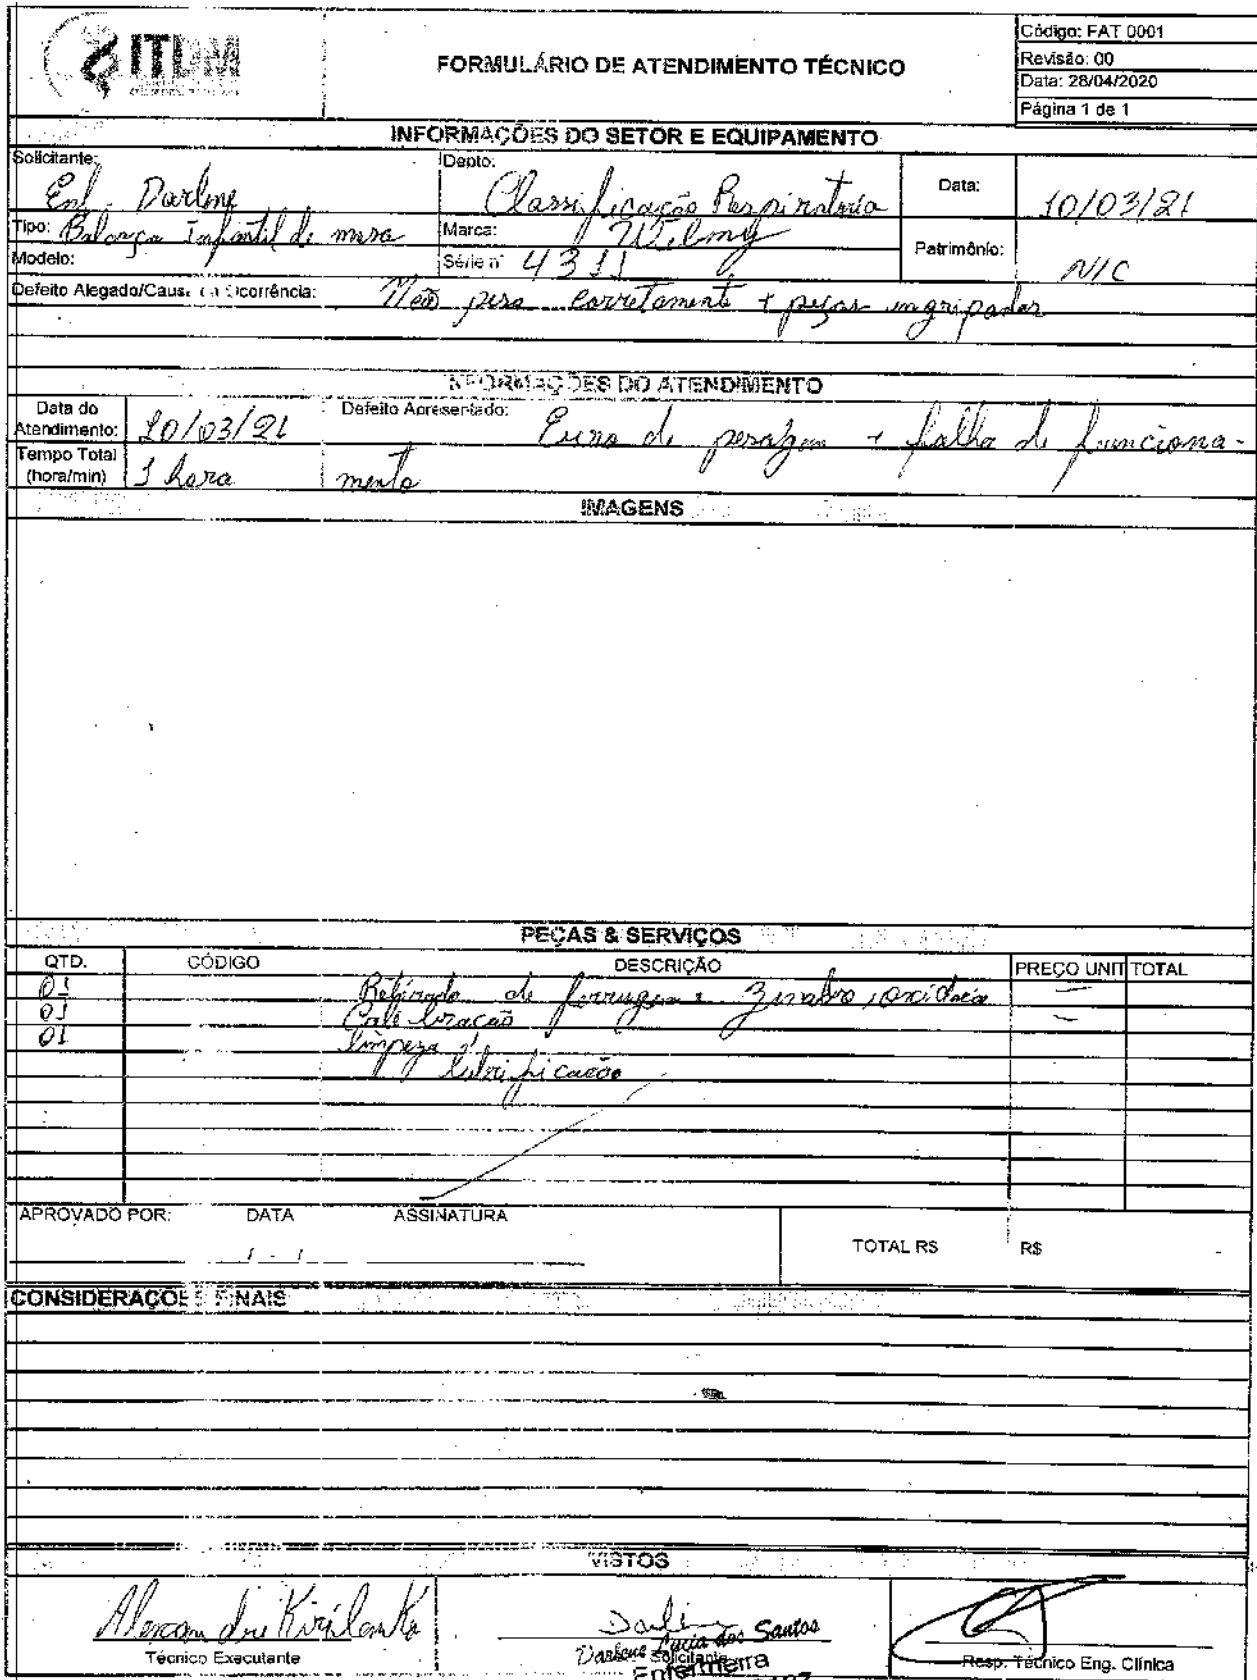 ITDM
FORMULÁRIO DE ATENDIMENTO TÉCNICO
Código: FAT 0001
Revisão: 00
Data: 28/04/2020
Página 1 de 1
INFORMAÇÕES DO SETOR E EQUIPAMENTO
Solicitante: Enf. Darlene
Depto: Classificação Respiratória
Data: 10/03/21
Tipo: Balança Infantil de mesa
Marca: Welmy
Patrimônio: N/C
Modelo:
Série nº 4311
Defeito Alegado/Causa da Ocorrência: Não pesa corretamente + peças ingripadas
INFORMAÇÕES DO ATENDIMENTO
Data do Atendimento: 10/03/21
Defeito Apresentado: Erro de pesagem + falha de funciona-
Tempo Total (hora/min) 1 hora
mento
IMAGENS
PEÇAS & SERVIÇOS
QTD. CÓDIGO DESCRIÇÃO PREÇO UNIT TOTAL
01 de ferrugem
01 Calibração
01 limpeza
lubrificação
APROVADO POR: DATA ASSINATURA
TOTAL R$ R$
CONSIDERAÇÕES FINAIS
VISTOS
Alexandre Kirilenko
Técnico Executante
Darlene Lucia dos Santos
Solicitante
Enfermeira
Resp. Técnico Eng. Clínica